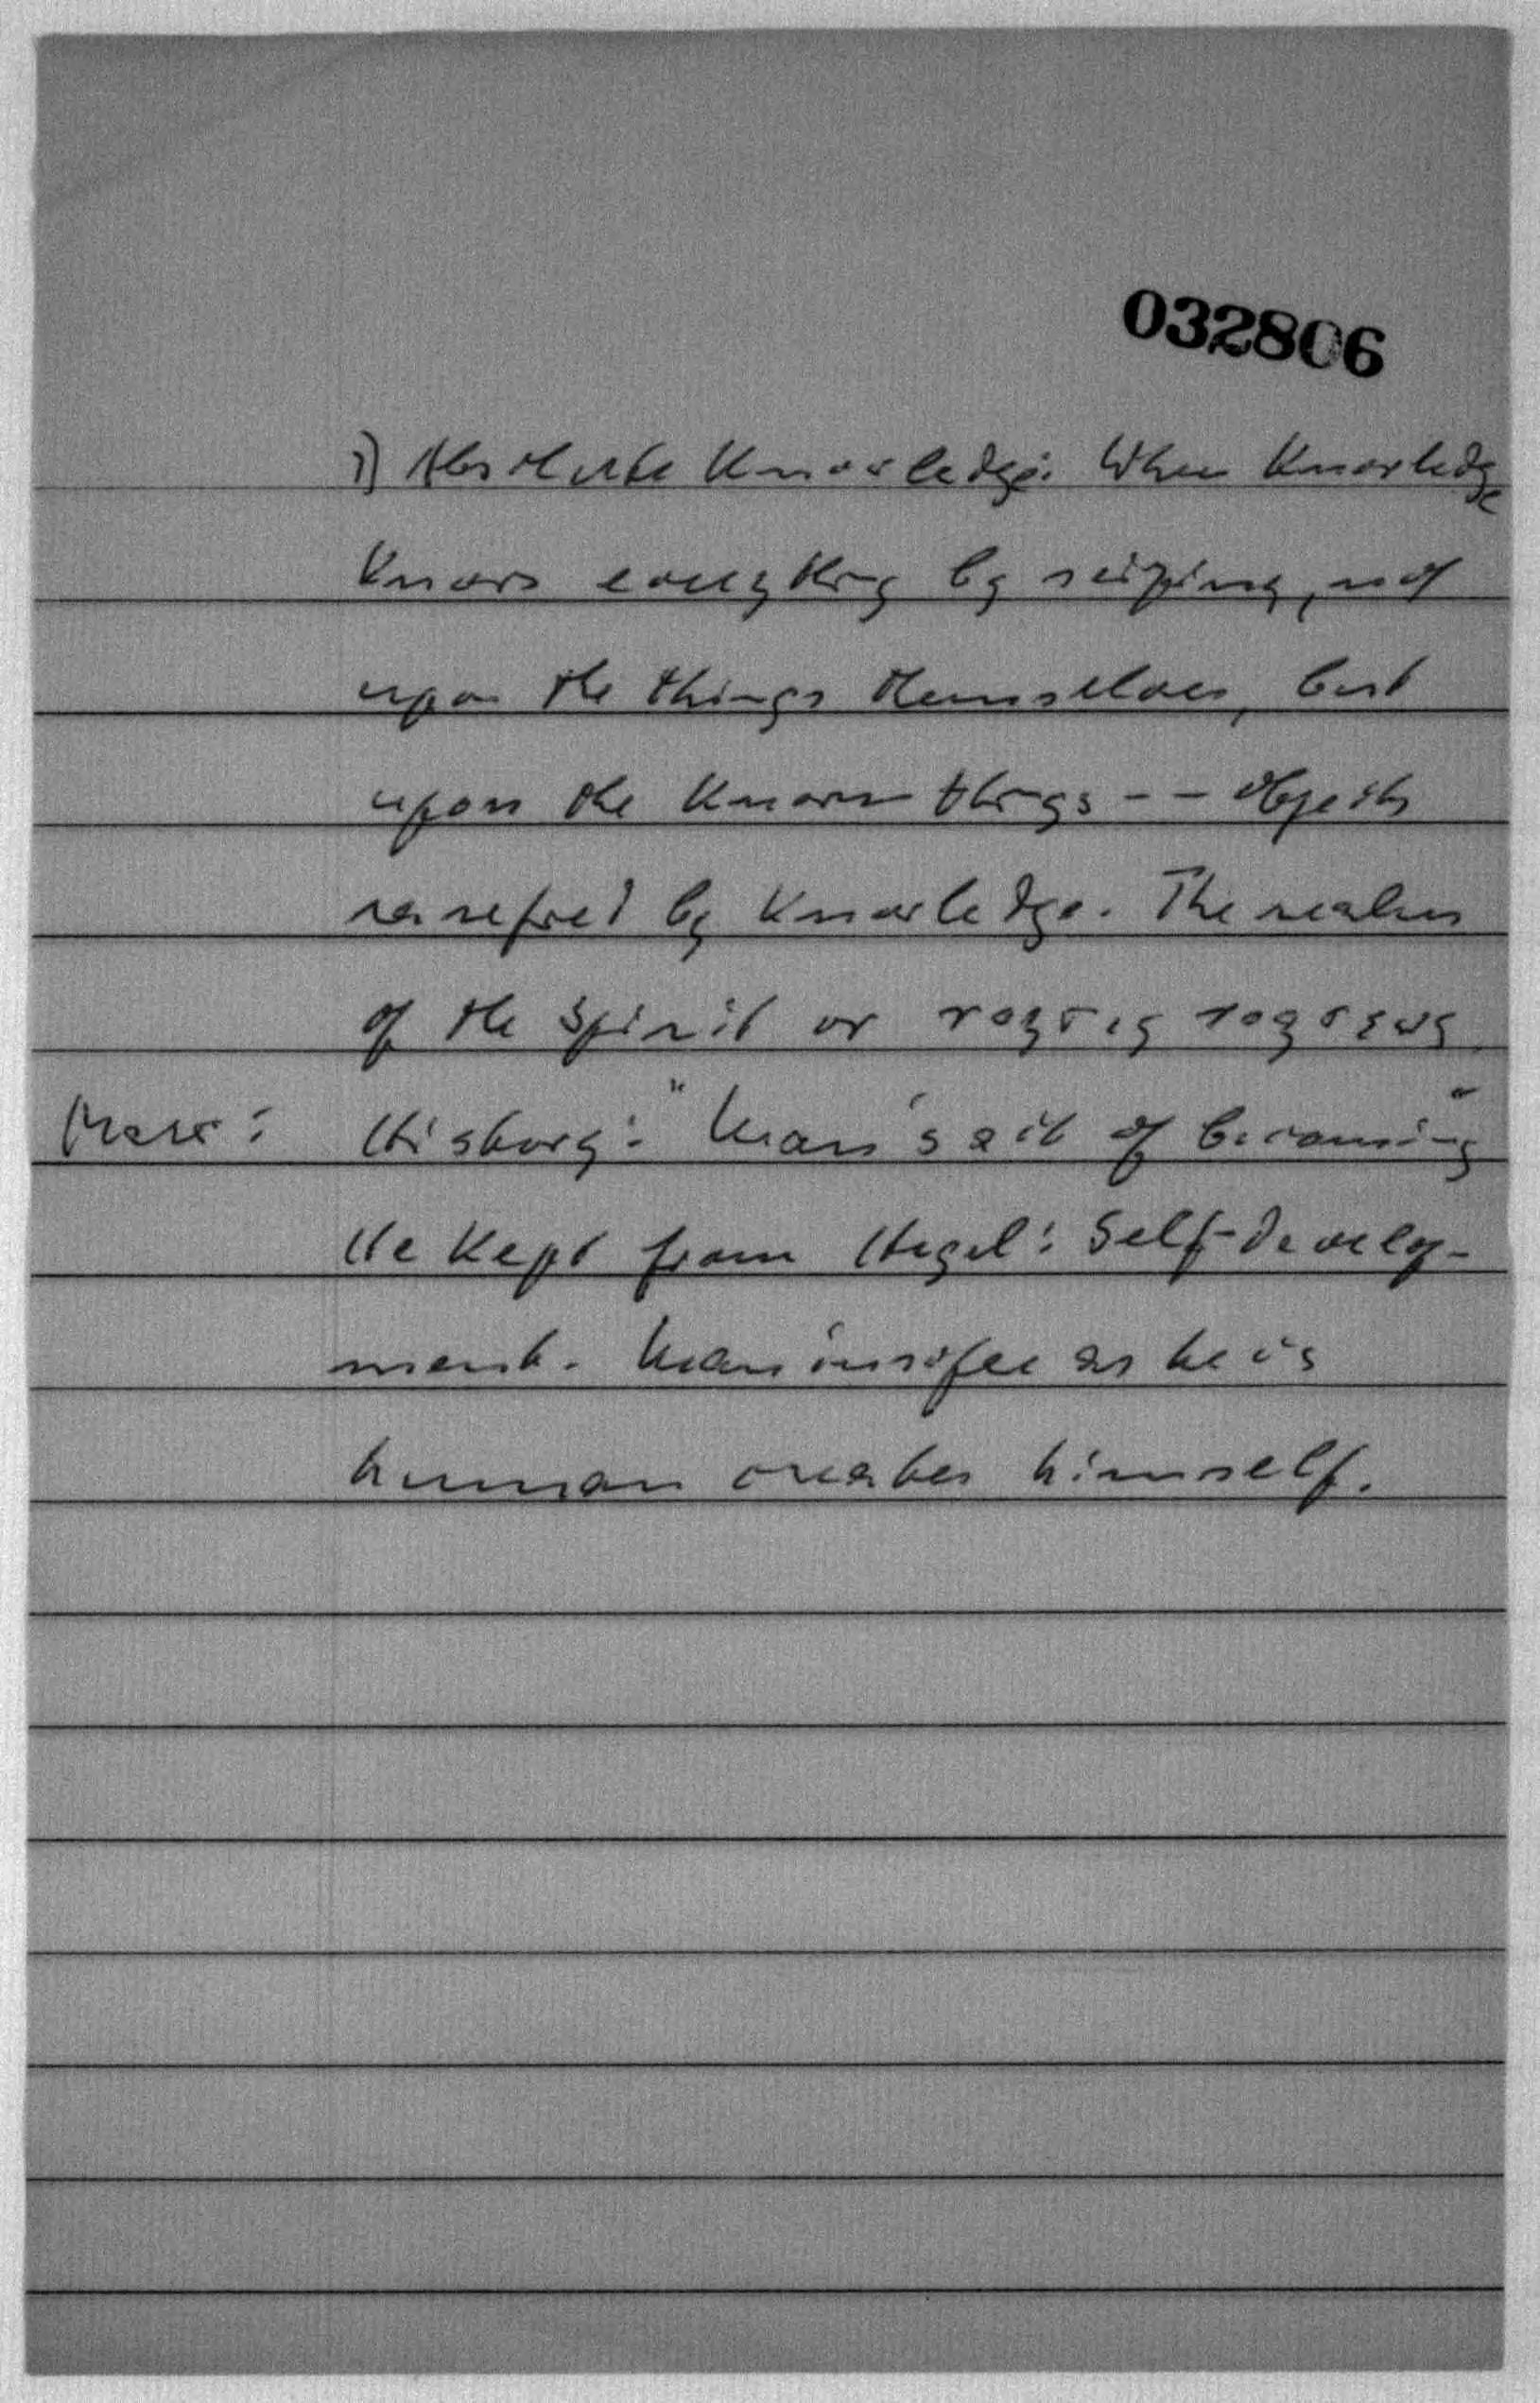 032806
1) Absolute Knowledge: When Knowledge
knows everything by seizing, not
upon the things themselves, but
upon the known things -- objects
by Knowledge. The realm
of the Spirit or νοησις νοησεως
Marx: History: "Man's act of becoming"
He kept from Hegel: Self-develop-
ment. Man insofar as he is
human creates himself.